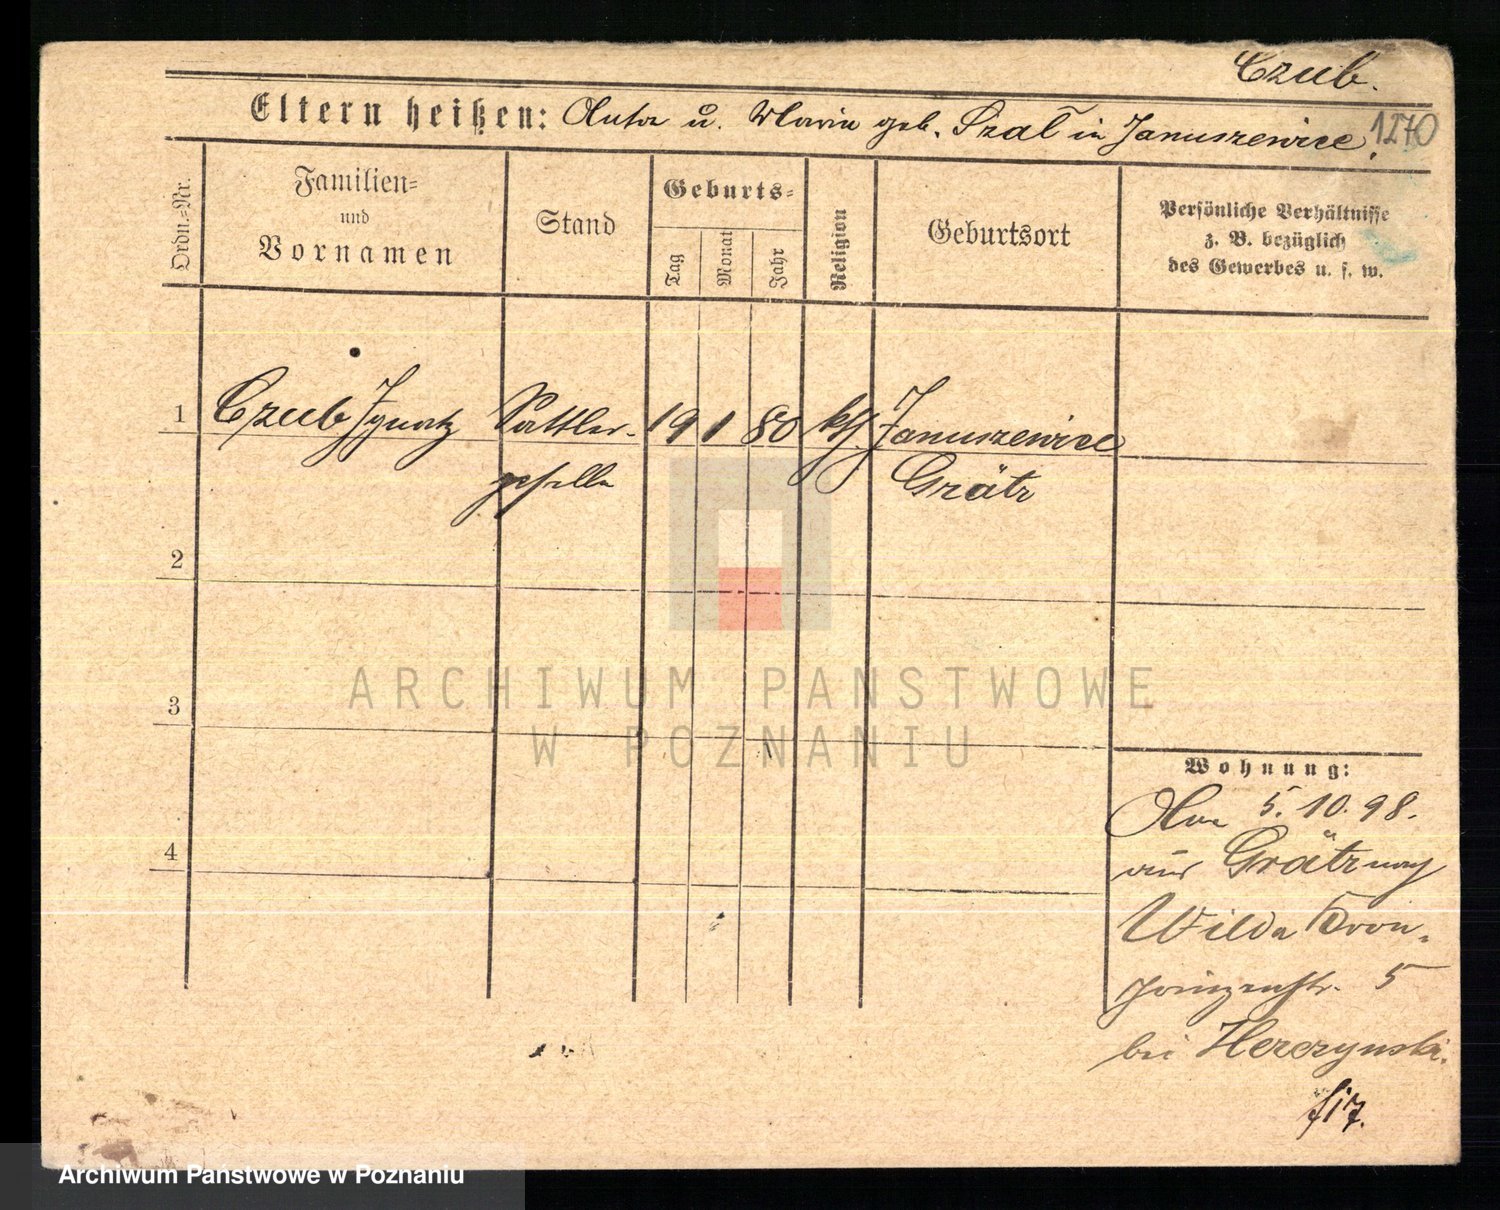 Czub.
Eltern heißen: Anton u. Maria geb. Szal in Januszewice.
1270
Ordn.-Nr.
Familien-
und
Vornamen
Stand
Geburts-
Tag
Monat
Jahr
Religion
Geburtsort
Persönliche Verhältnisse
z. B. bezüglich
des Gewerbes u. s. w.
1 Czub Ignatz Sattler- 19 1 80 kth. Januszewice
geselle Grätz
2
3
4
ARCHIWUM PANSTWOWE
W POZNANIU
Wohnung:
Am 5.10.98.
aus Grätz nach
Wilda Kron-
prinzenstr. 5
bei Herczynski.
Archiwum Państwowe w Poznaniu